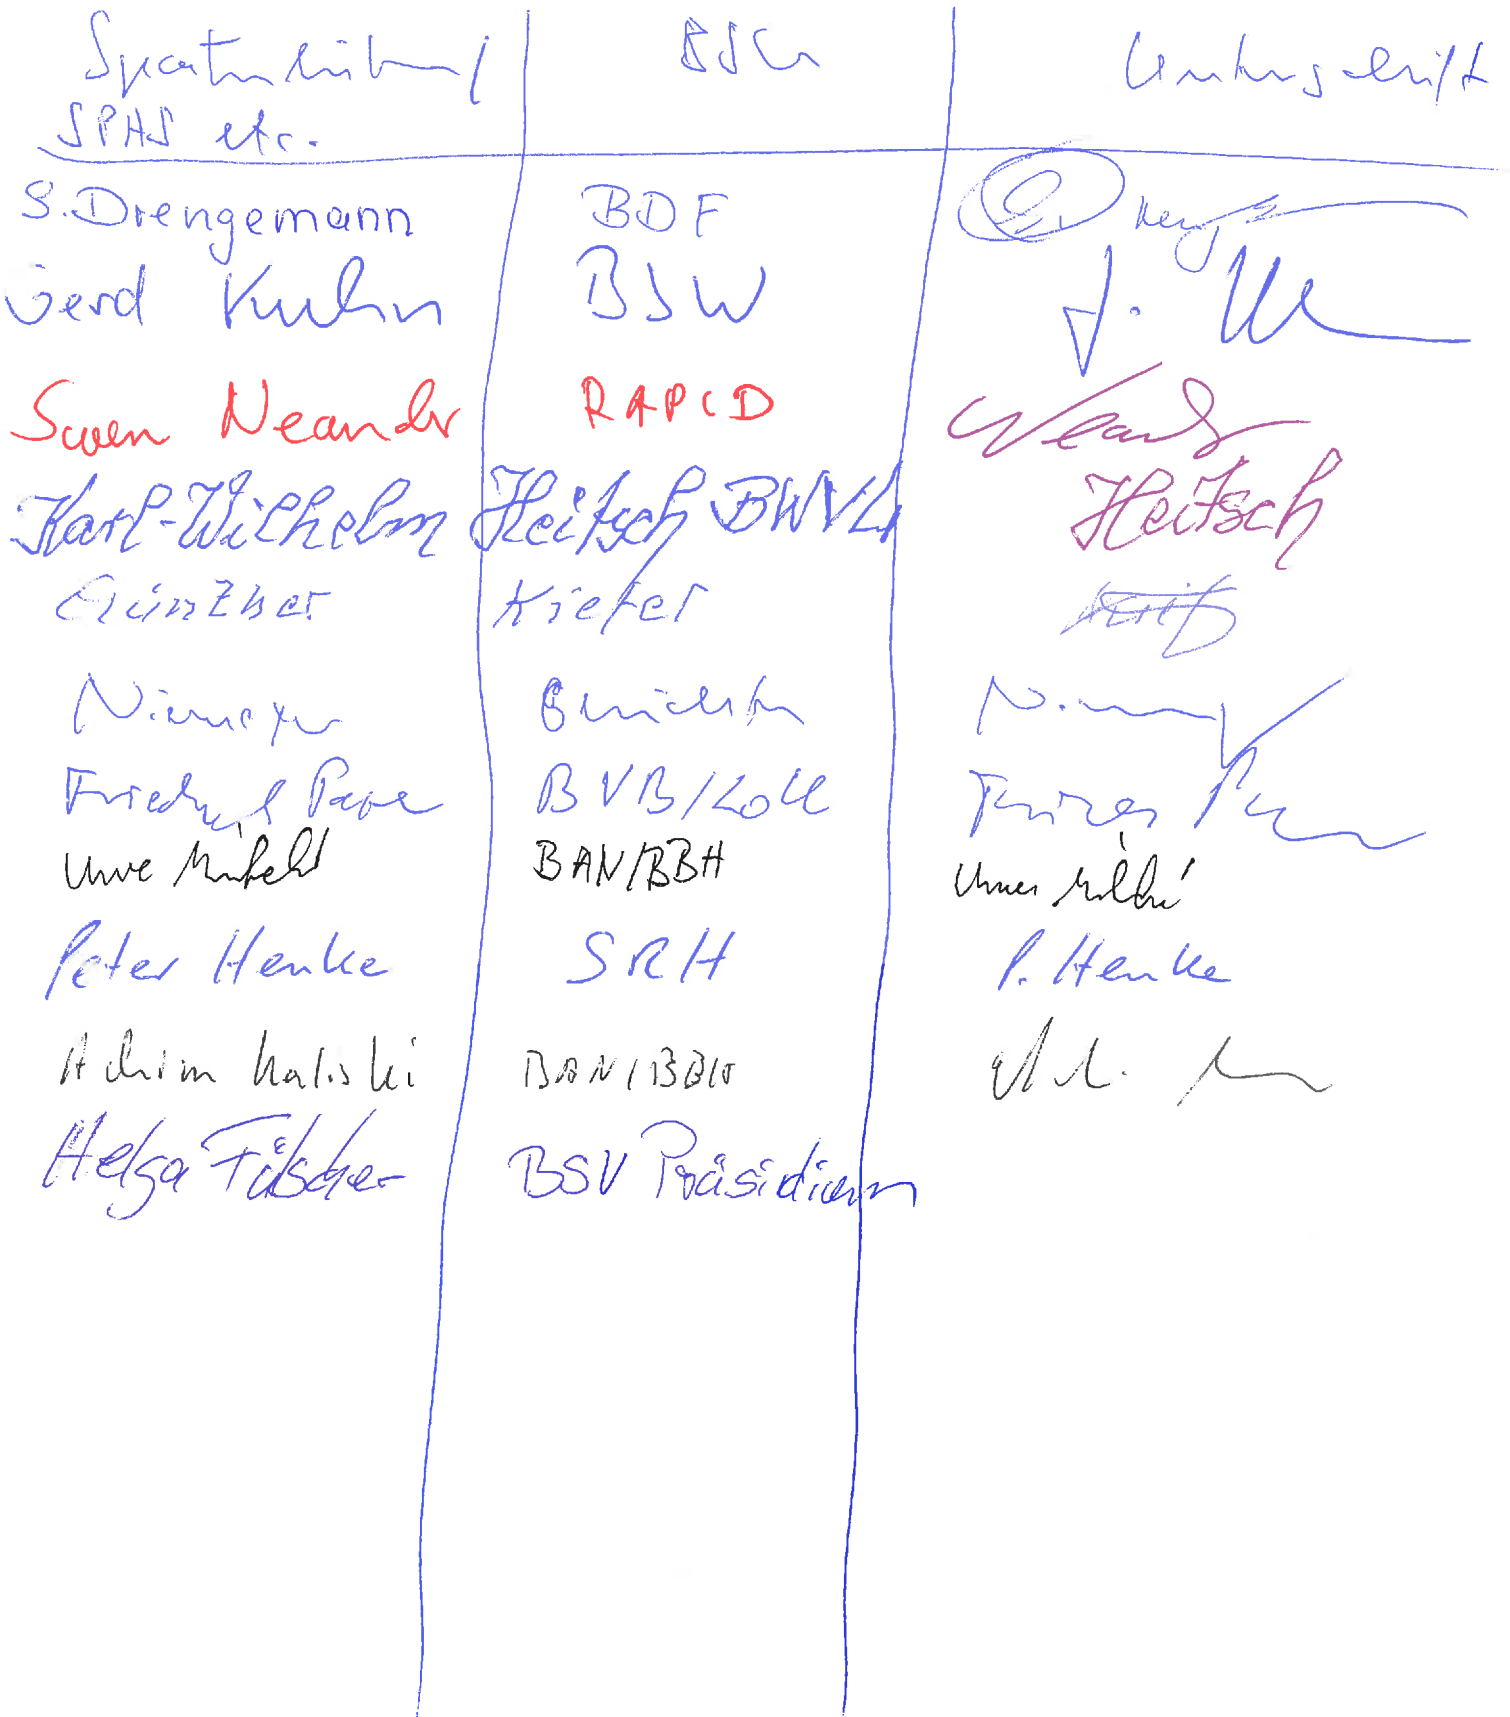 Spartenleitung BSG Unterschrift
SPAS etc.
S. Drengemann BDF
Gerd Kuhn BSW
Swen Neander RAPID Neander
Karl-Wilhelm Heitsch BWVL Heitsch
Günther Kiefer
Niemeyer Gerichte
Friedrich Pape BVB/Zoll
Uwe BAN/BBH
Peter Henke SRH P. Henke
Achim Kaliski BAN/BBH
Helga Fülscher BSV Präsidium